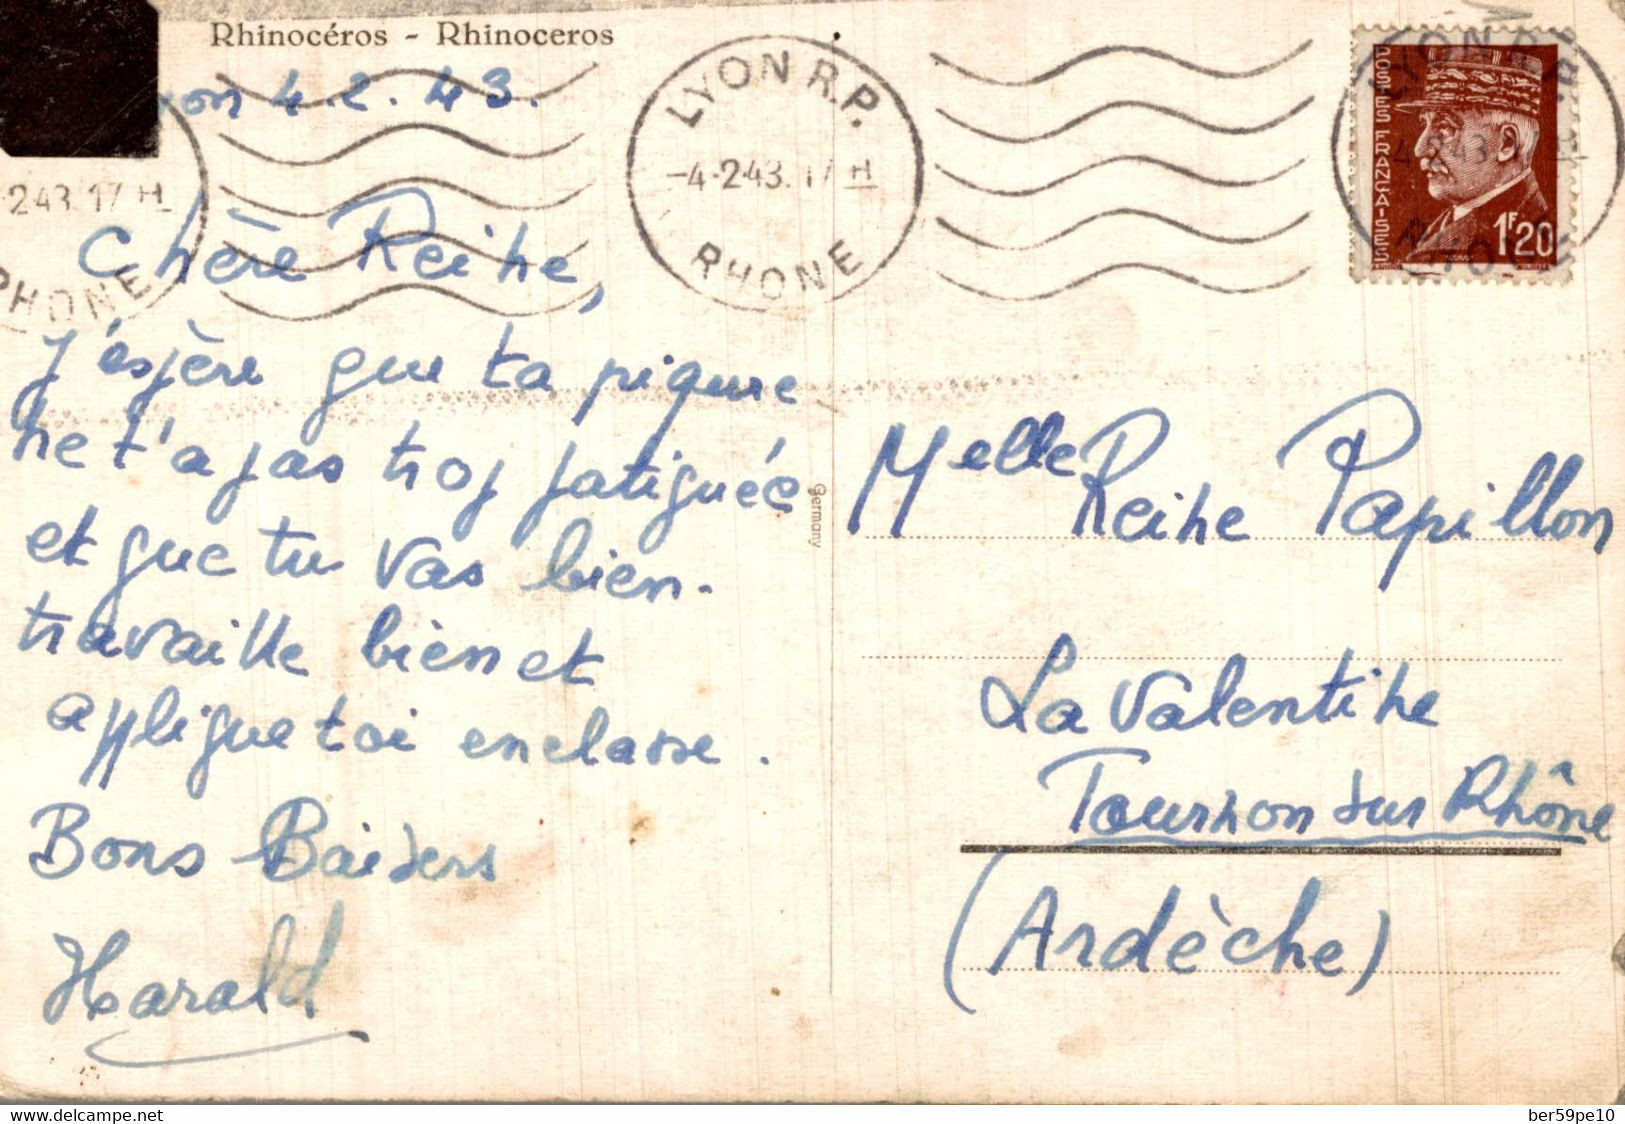 Rhinocéros - Rhinoceros
yon 4.2.43.
LYON R.P.
-4-2 43. 17 H
RHONE
243. 17 H
RHONE
LYON R.P.
4-2 43
RHONE
POSTES FRANÇAISES
1F20
Chère Reine,
J'espère que ta piqure
ne t'a pas trop fatiguée
et que tu vas bien.
travaille bien et
applique toi en classe.
Bons Baisers
Harald
Germany
Melle Reine Papillon
La Valentine
Tournon sur Rhône
(Ardèche)
www.delcampe.net
ber59pe10